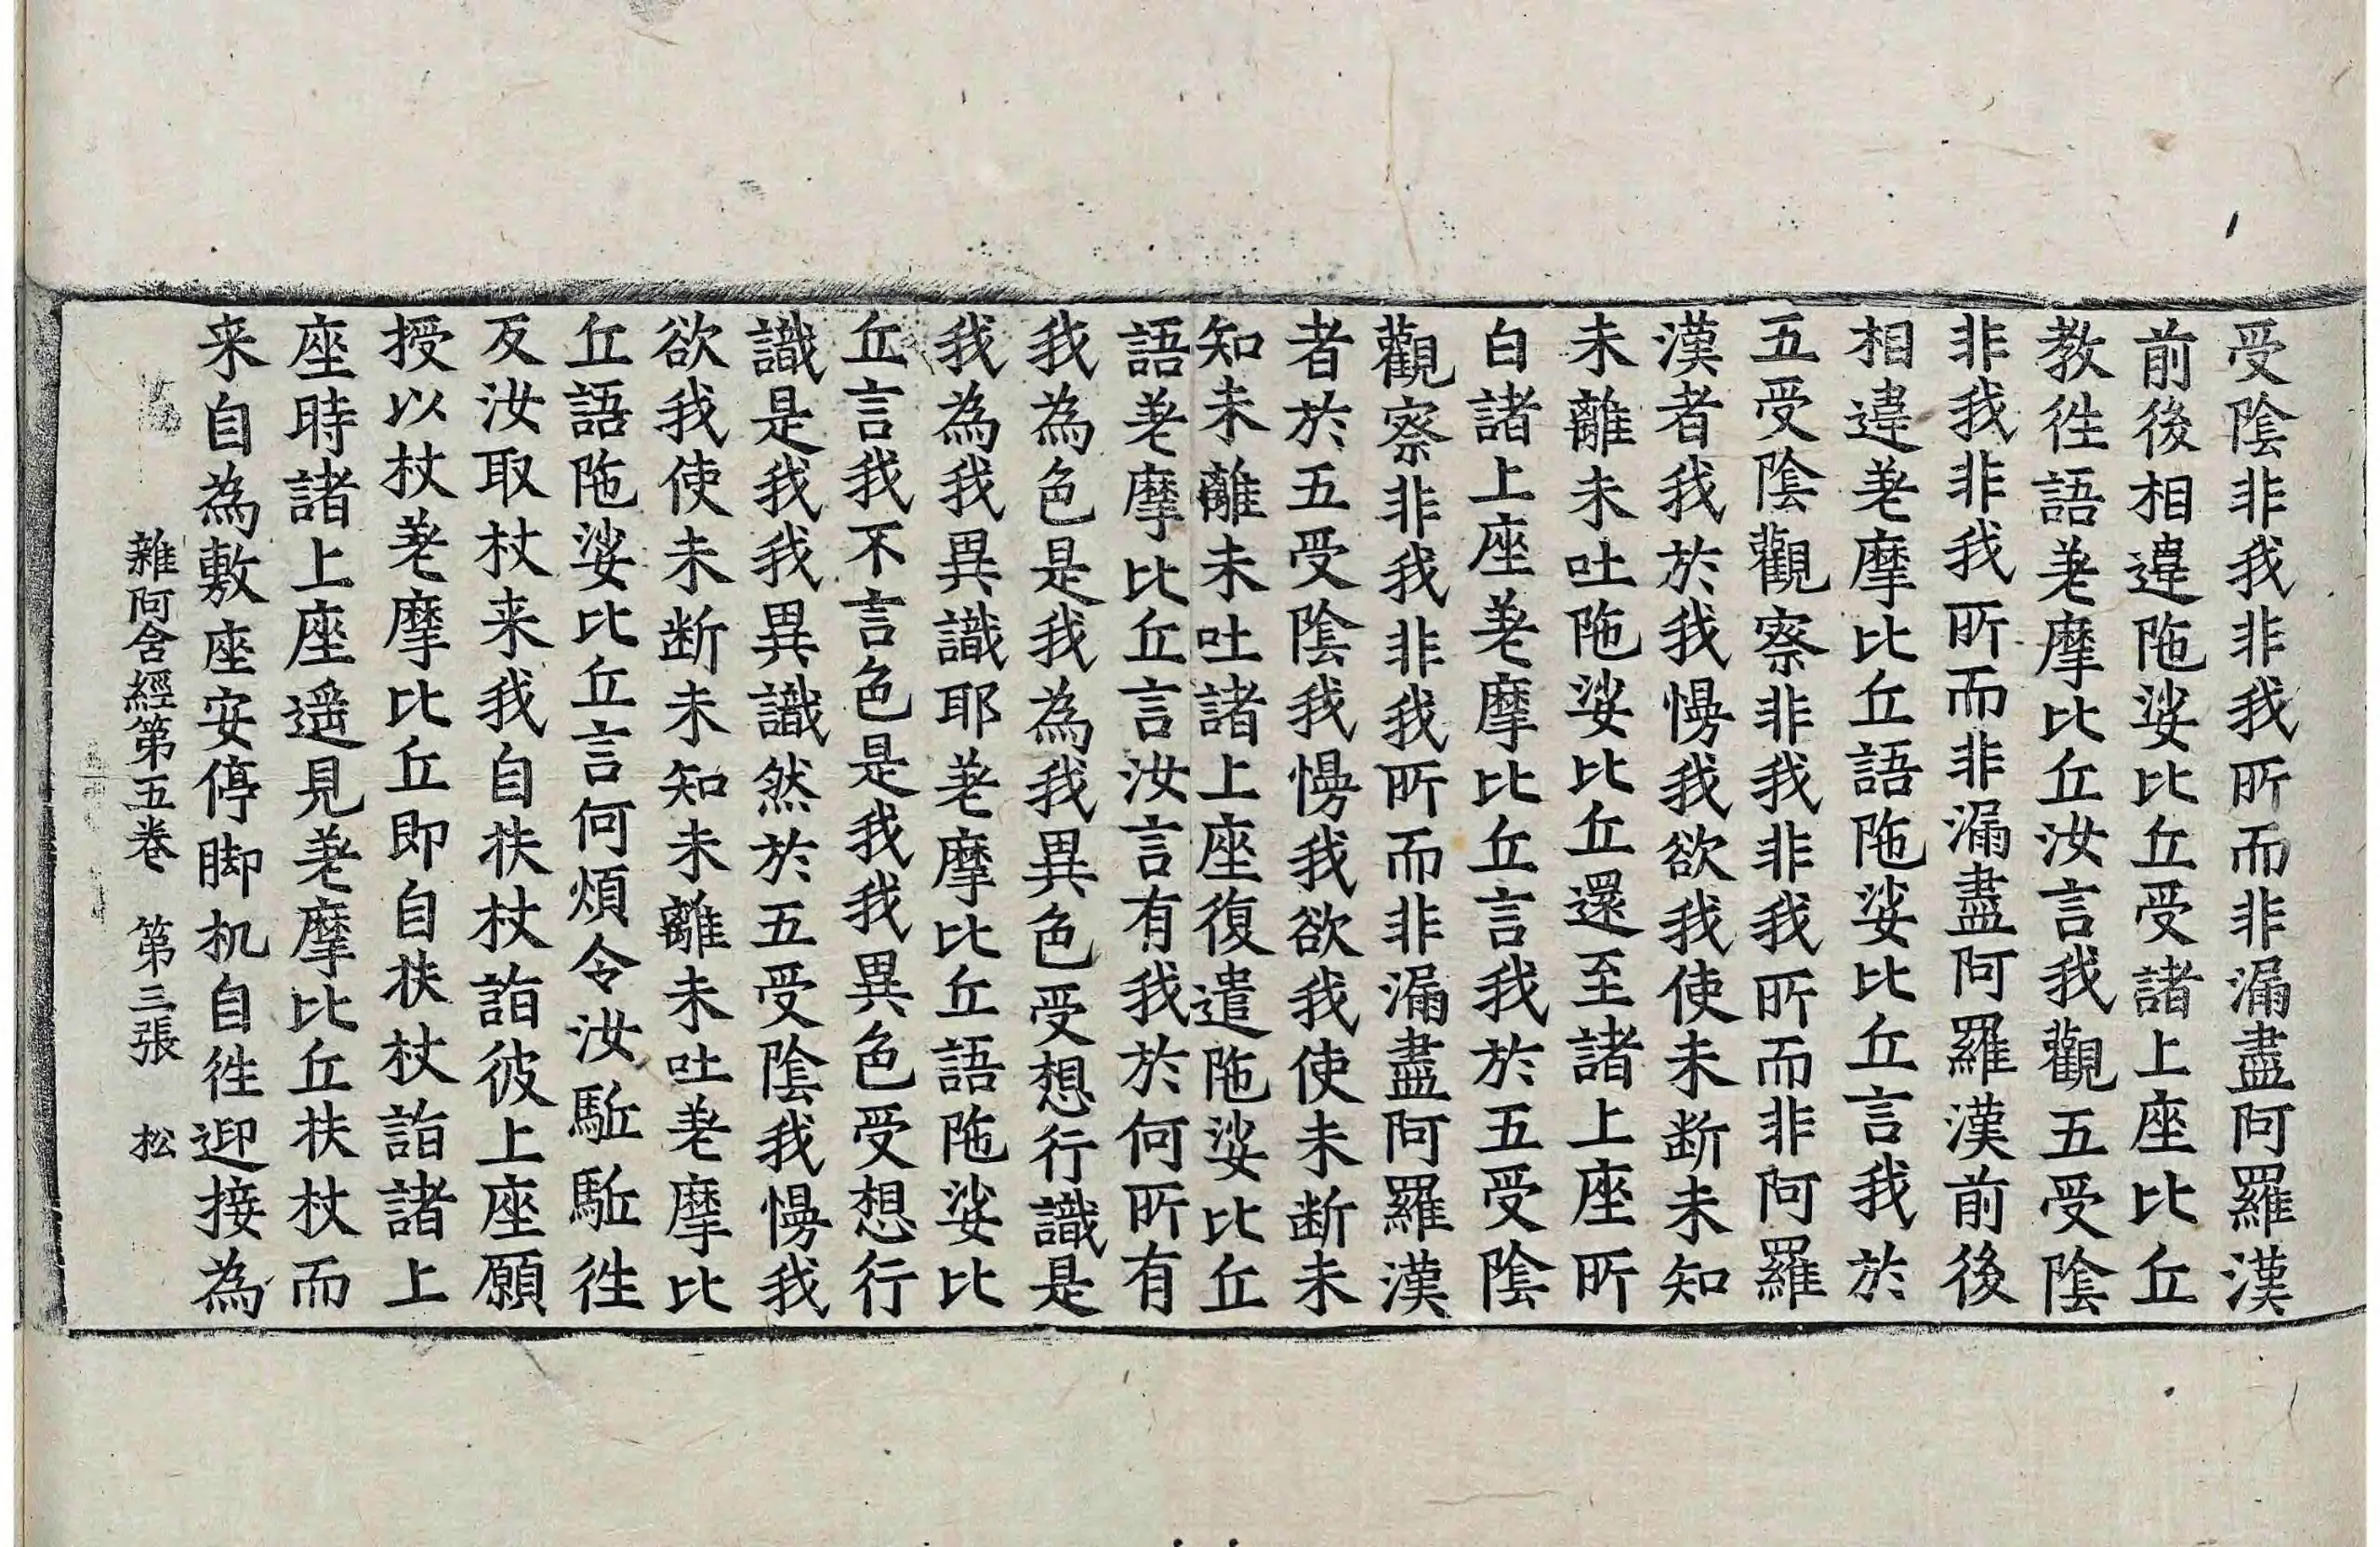 受陰非我非我所而非漏盡阿羅漢
前後相違陁娑比丘受諸上座比丘
教往語差摩比丘汝言我觀五受陰
非我非我所而非漏盡阿羅漢前後
相違差摩比丘語陁娑比丘言我於
五受陰觀察非我非我所而非阿羅
漢者我於我慢我欲我使未断未知
未離未吐陁娑比丘還至諸上座所
白諸上座差摩比丘言我於五受陰
觀察非我非我所而非漏盡阿羅漢
者於五受陰我慢我欲我使未断未
知未離未吐諸上座復遣陁娑比丘
語差摩比丘言汝言有我於何所有
我為色是我為我異色受想行識是
我為我異識耶差摩比丘語陁娑比
丘言我不言色是我我異色受想行
識是我我異識然於五受陰我慢我
欲我使未断未知未離未吐差摩比
丘語陁娑比丘言何煩令汝駈駈往
反汝取杖来我自扶杖詣彼上座願
授以杖差摩比丘即自扶杖詣諸上
座時諸上座遥見差摩比丘扶杖而
来自為敷座安停脚机自往迎接為
雜阿含經第五卷　第三張　松